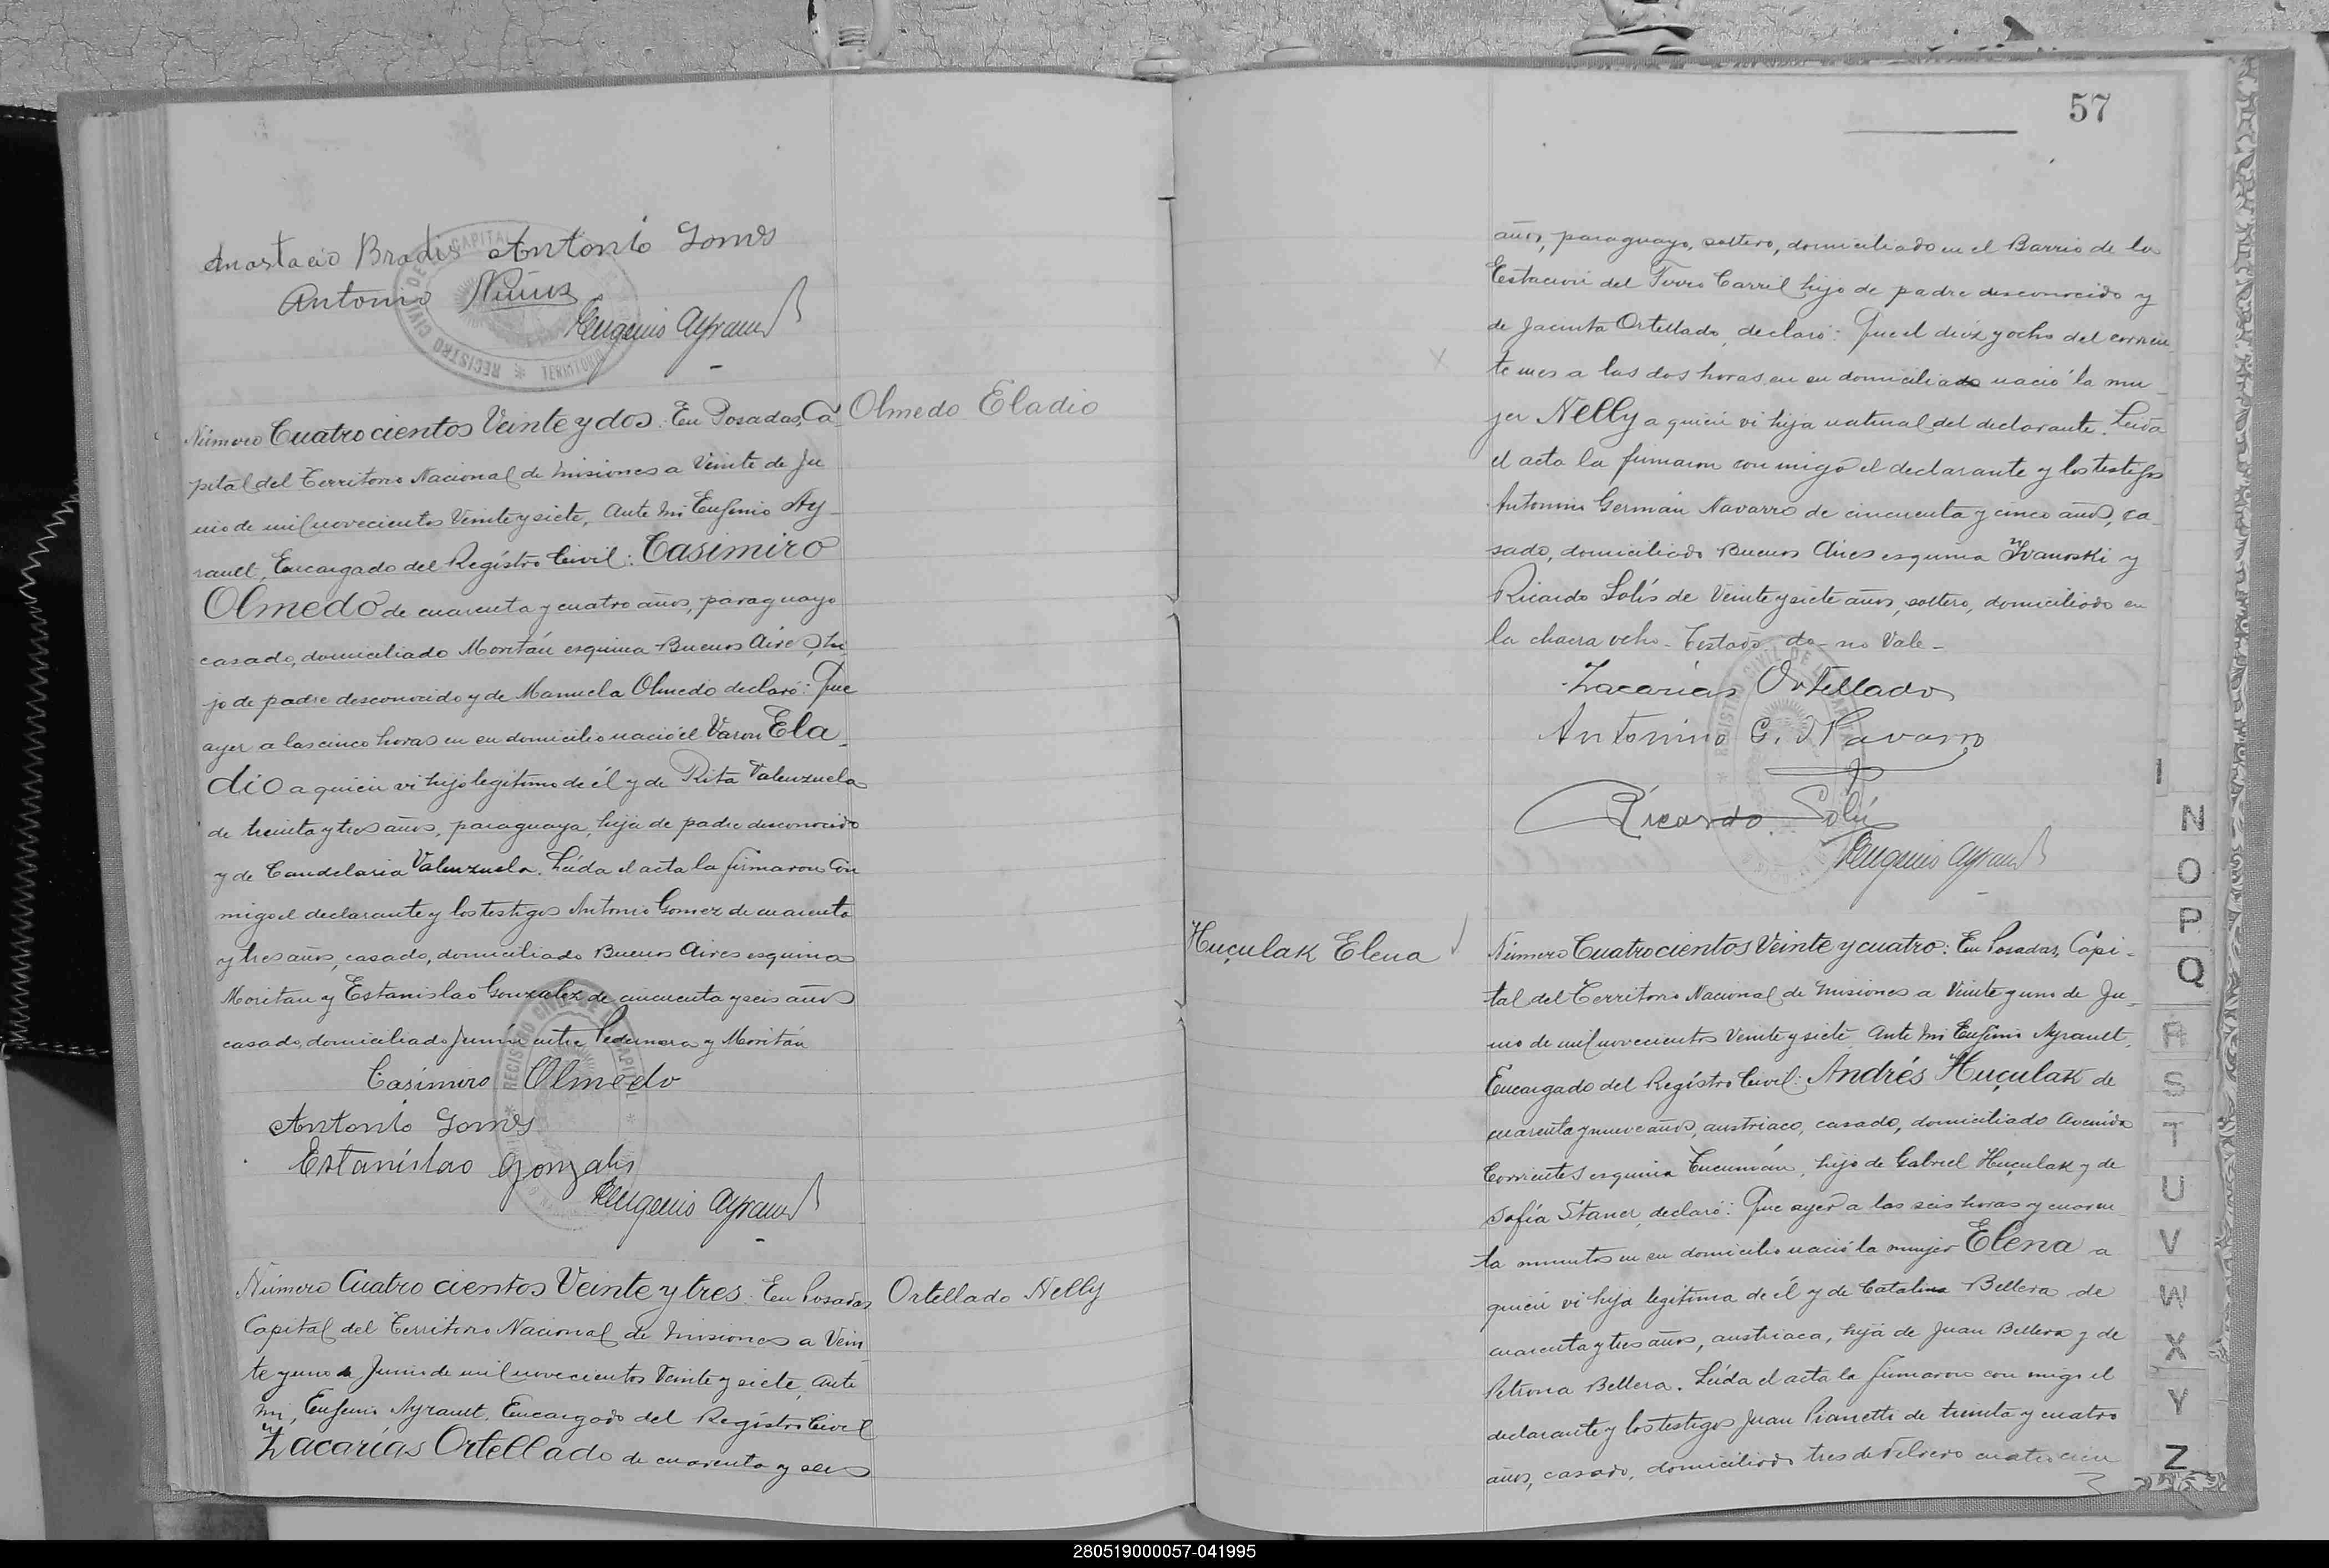 Anastacio Bradis Antonio Gomes
Antonio Núñez
Eugenio Ayrault
REGISTRO CIVIL DE LA CAPITAL
Olmedo Eladio
Número Cuatrocientos Veinte y dos: En Posadas, Ca
pital del Territorio Nacional de Misiones a Veinte de Ju
nio de mil novecientos Veinte y siete, Ante Mi Eugenio Ay-
rault, Encargado del Regístro Civil: Casimiro
Olmedo de cuarenta y cuatro años, paraguayo
casado, domiciliado Moritán esquina Buenos Aires, hi
jo de padre desconocido y de Manuela Olmedo declaró: Que
ayer a las cinco horas en su domicilio nació el Varon Ela-
dio a quien vi hijo legitimo de él y de Rita Valenzuela
de treinta y tres años, paraguaya, hija de padre desconocido
y de Candelaria Valenzuela. Leída el acta la firmaron con
migo el declarante y los testigos Antonio Gomez de cuarenta
y tres años, casado, domiciliado Buenos Aires esquina
Moritan y Estanislao Gonzalez de cincuenta y seis años
casado, domiciliado Junín entre Pedernera y Moritán
Casimiro Olmedo
Antonio Gomes
Estanislao Gonzales
Eugenio Ayrault
Ortellado Nelly
Número Cuatro cientos Veinte y tres: En Posadas
Capital del Territorio Nacional de Misiones a Vein
te y uno de Junio de mil novecientos Veinte y siete, Ante
mi, Eugenio Ayrault, Encargado del Regístro Civil
Zacarías Ortellado de cuarenta y seis
57
años, paraguayo, soltero, domiciliado en el Barrio de la
Estación del Ferro Carril hijo de padre desconocido y
de Jacinta Ortellado, declaró: Que el diez y ocho del corrien
te mes a las dos horas en su domiciliado nació la mu-
jer Nelly a quien vi hija natural del declarante. Leida
el acta la firmaron con migo el declarante y los testigos
Antonino Germán Navarro de cincuenta y cinco años, ca-
sado, domiciliado Buenos Aires esquina Ivanoski y
Ricardo Solís de Veinte y siete años, soltero, domiciliado en
la chacra ocho - Testado - do - no Vale -
Zacarías Ortellado
Antonino G. Navarro
Ricardo Solís
Eugenio Ayrault
Huçulak Elena
Número Cuatrocientos Veinte y cuatro: En Posadas, Capi-
tal del Territorio Nacional de Misiones a Veinte y uno de Ju-
nio de mil novecientos Veinte y siete, Ante Mi Eugenio Ayrault,
Encargado del Regístro Civil: Andrés Huçulak de
cuarenta y nueve años, austriaco, casado, domiciliado Avenida
Corrientes esquina Tucumán, hijo de Gabriel Huçulak y de
Sofía Staner, declaró: Que ayer a las seis horas y cuaren-
ta minutos en su domicilio nació la mujer Elena a
quien vi hija legítima de él y de Catalina Bellera de
cuarenta y tres años, austriaca, hija de Juan Bellera y de
Petrona Bellera. Leída el acta la firmaron con migo el
declarante y los testigos Juan Pianetti de treinta y cuatro
años, casado, domiciliado tres de Febrero cuatrocien
I
N
O
P
Q
R
S
T
U
V
W
X
Y
Z
280519000057-041995